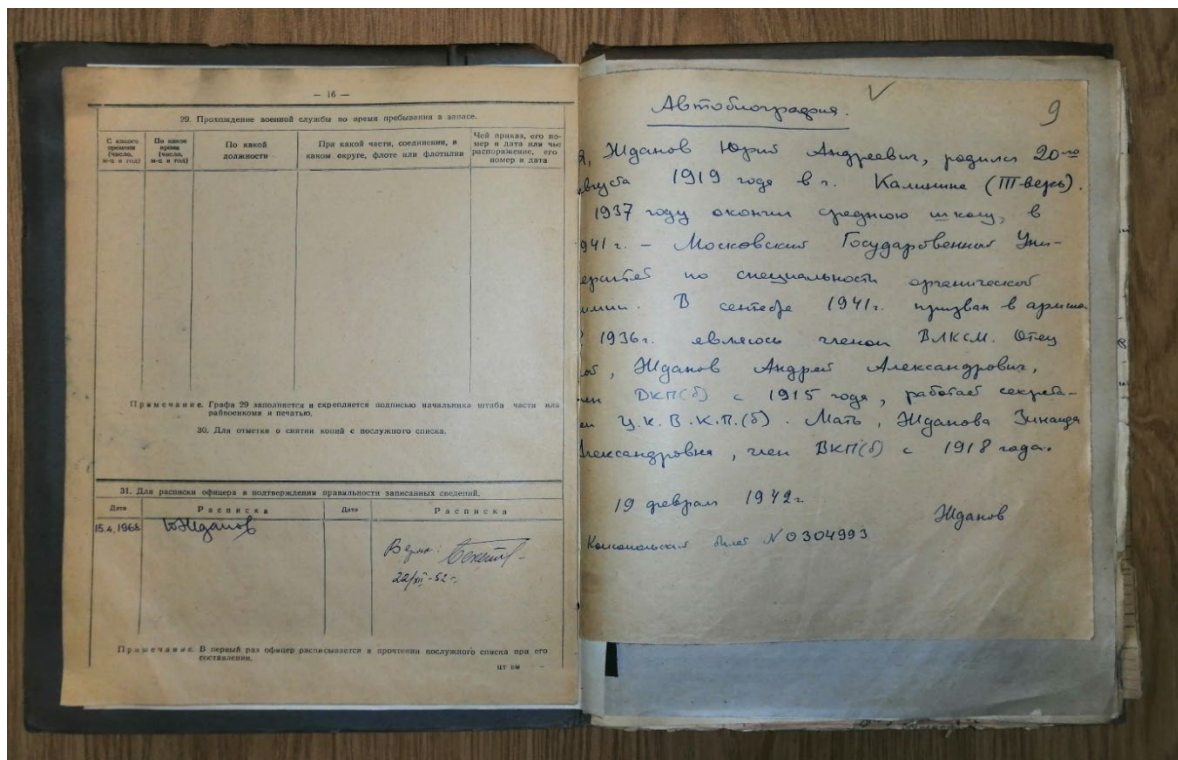 — 16 —
29. Прохождение военной службы во время пребывания в запасе.
С какого времени (число, м-ц и год)
По какое время (число, м-ц и год)
По какой должности
При какой части, соединении, в каком округе, флоте или флотилии
Чей приказ, его номер и дата или чье распоряжение, его номер и дата
Примечание. Графа 29 заполняется и скрепляется подписью начальника штаба части или
райвоенкома и печатью.
30. Для отметки о снятии копий с послужного списка.
31. Для расписки офицера в подтверждении правильности записанных сведений.
Дата Расписка Дата Расписка
15.4.1968 ЮЖданов
Верно:
22/XII-52 г.
Примечание. В первый раз офицер расписывается в прочтении послужного списка при его
составлении.
9
Автобиография.
Я, Жданов Юрий Андреевич, родился 20-го
августа 1919 года в г. Калинине (Тверь).
1937 году окончил среднюю школу, в
941 г. – Московский Государственный Уни-
верситет по специальности органической
химии. В сентябре 1941 г. призван в армию
1936 г. являюсь членом ВЛКСМ. Отец
мой, Жданов Андрей Александрович,
член ВКП(б) с 1915 года, работает секрета-
рем Ц.К. В.К.П.(б). Мать, Жданова Зинаида
Александровна, член ВКП(б) с 1918 года.
19 февраля 1942 г.
Жданов
Комсомольский билет № 0304993